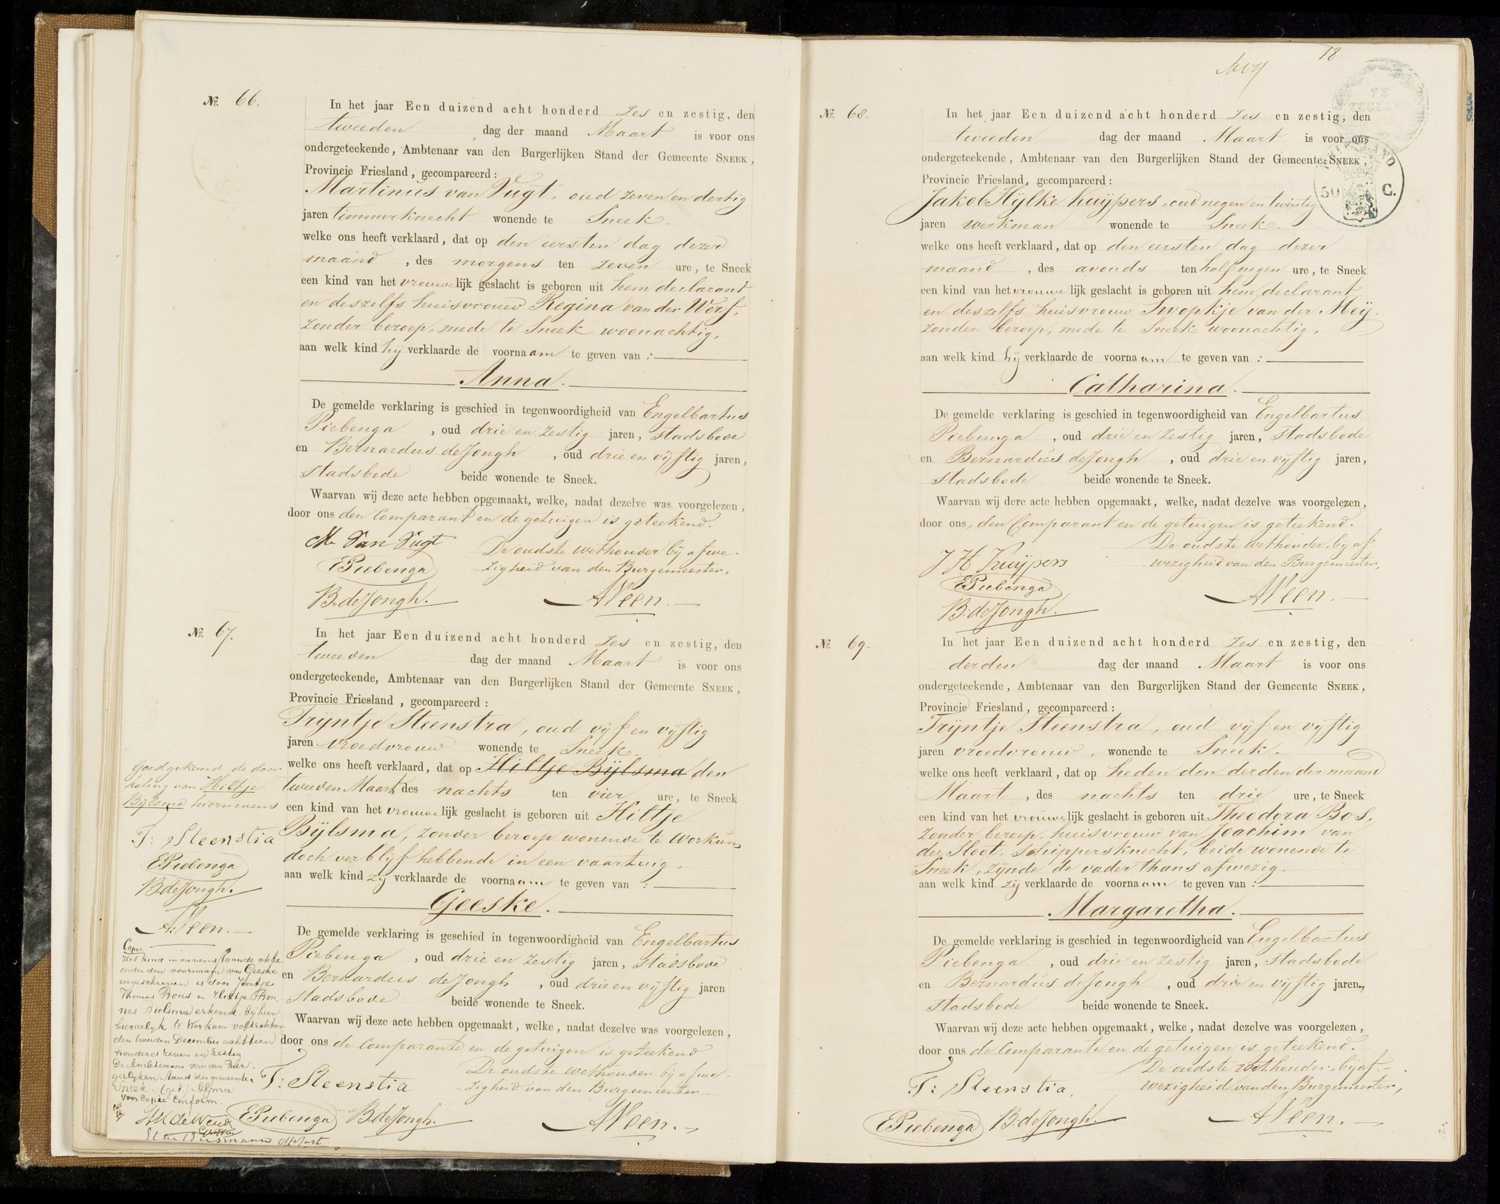 № 66.
In het jaar Een duizend acht honderd zes en zestig, den
tweeden dag der maand Maart is voor ons
ondergeteekende, Ambtenaar van den Burgerlijken Stand der Gemeente SNEEK,
Provincie Friesland, gecompareerd:
Martinus van Vugt, oud zeven en dertig
jaren timmerknecht wonende te Sneek
welke ons heeft verklaard, dat op den eersten dag dezer
maand, des morgens ten zeven ure, te Sneek
een kind van het vrouwelijk geslacht is geboren uit hem declarant
en deszelfs huisvrouw Regina van der Werf,
zonder beroep, mede te Sneek woonachtig,
aan welk kind hij verklaarde de voornaam te geven van:
Anna.
De gemelde verklaring is geschied in tegenwoordigheid van Engelbartus
Piebenga, oud drie en zestig jaren, stadsbode
en Bernardus de Jongh, oud drie en vijftig jaren,
stadsbode beide wonende te Sneek.
Waarvan wij deze acte hebben opgemaakt, welke, nadat dezelve was voorgelezen,
door ons den Comparant en de getuigen is geteekend.
M. Van Vugt De oudste wethouder bij afwe-
EPiebenga zigheid van den Burgemeester,
B. de Jongh. Alleen.
№ 67.
In het jaar Een duizend acht honderd zes en zestig, den
tweeden dag der maand Maart is voor ons
ondergeteekende, Ambtenaar van den Burgerlijken Stand der Gemeente SNEEK,
Provincie Friesland, gecompareerd:
Trijntje Steenstra, oud vijf en vijftig
jaren vroedvrouw wonende te Sneek
welke ons heeft verklaard, dat op Hiltje Bijlsma den
tweeden Maart des nachts ten vier ure, te Sneek
een kind van het vrouwelijk geslacht is geboren uit Hiltje
Bijlsma, zonder beroep wonende te Workum
doch verblijf hebbende in een vaartuig
aan welk kind zij verklaarde de voornaam te geven van:
Geeske.
De gemelde verklaring is geschied in tegenwoordigheid van Engelbartus
Piebenga, oud drie en zestig jaren, stadsbode
en Bernardus de Jongh, oud drie en vijftig jaren
stadsbode beide wonende te Sneek.
Waarvan wij deze acte hebben opgemaakt, welke, nadat dezelve was voorgelezen,
door ons de Comparante en de getuigen is geteekend
T: Steenstra De oudste wethouder bij afwe-
zigheid van den Burgemeester
EPiebenga B. de Jongh. Alleen.
Goedgekeurd de doorhaling
van Hiltje
Bijlsma hiernevens
T: Steenstra
EPiebenga
B. de Jongh.
Alleen.
Copie
Het kind in nevenstaande akte
onder den voornaam van Geeske
ingeschreven is door
Thomas en Hiltje
Bijlsma erkend bij hun
huwelijk te Workum voltrokken
den tweeden December achttien
honderd zeven en zestig
De Ambtenaar van den Burgerlijken
Stand der gemeente
Sneek
Voor Copie Conform
18
№ 68.
In het jaar Een duizend acht honderd zes en zestig, den
tweeden dag der maand Maart is voor ons
ondergeteekende, Ambtenaar van den Burgerlijken Stand der Gemeente SNEEK,
Provincie Friesland, gecompareerd:
Jakob Hylke Kuijpers, oud negen en twintig
jaren werkman wonende te Sneek.
welke ons heeft verklaard, dat op den eersten dag dezer
maand, des avonds ten half negen ure, te Sneek
een kind van het vrouwelijk geslacht is geboren uit hem declarant
en deszelfs huisvrouw Swopkje van der Meij.
zonder beroep, mede te Sneek woonachtig,
aan welk kind hij verklaarde de voornaam te geven van:
Catharina.
De gemelde verklaring is geschied in tegenwoordigheid van Engelbartus
Piebenga, oud drie en zestig jaren, stadsbode
en Bernardus de Jongh, oud drie en vijftig jaren,
stadsbode beide wonende te Sneek.
Waarvan wij deze acte hebben opgemaakt, welke, nadat dezelve was voorgelezen,
door ons, den Comparant en de getuigen is geteekend.
J H Kuijpers De oudste wethouder, bij af-
EPiebenga wezigheid van den Burgemeester,
B. de Jongh. Alleen.
№ 69.
In het jaar Een duizend acht honderd zes en zestig, den
derden dag der maand Maart is voor ons
ondergeteekende, Ambtenaar van den Burgerlijken Stand der Gemeente SNEEK,
Provincie Friesland, gecompareerd:
Trijntje Steenstra, oud vijf en vijftig
jaren vroedvrouw, wonende te Sneek.
welke ons heeft verklaard, dat op heden den derden der maand
Maart, des nachts ten drie ure, te Sneek
een kind van het vrouwelijk geslacht is geboren uit Theodora Bos,
zonder beroep, huisvrouw van Joachim van
der Sloot, schippersknecht, beide wonende te
Sneek, zijnde de vader thans afwezig
aan welk kind zij verklaarde de voornaam te geven van:
Margaretha.
De gemelde verklaring is geschied in tegenwoordigheid van Engelbartus
Piebenga, oud drie en zestig jaren, stadsbode
en Bernardus de Jongh, oud drie en vijftig jaren,
stadsbode beide wonende te Sneek.
Waarvan wij deze acte hebben opgemaakt, welke, nadat dezelve was voorgelezen,
door ons de Comparante en de getuigen is geteekend.
T: Steenstra. De oudste wethouder, bij af-
wezigheid van den Burgemeester,
EPiebenga B. de Jongh. Alleen.
50 C.